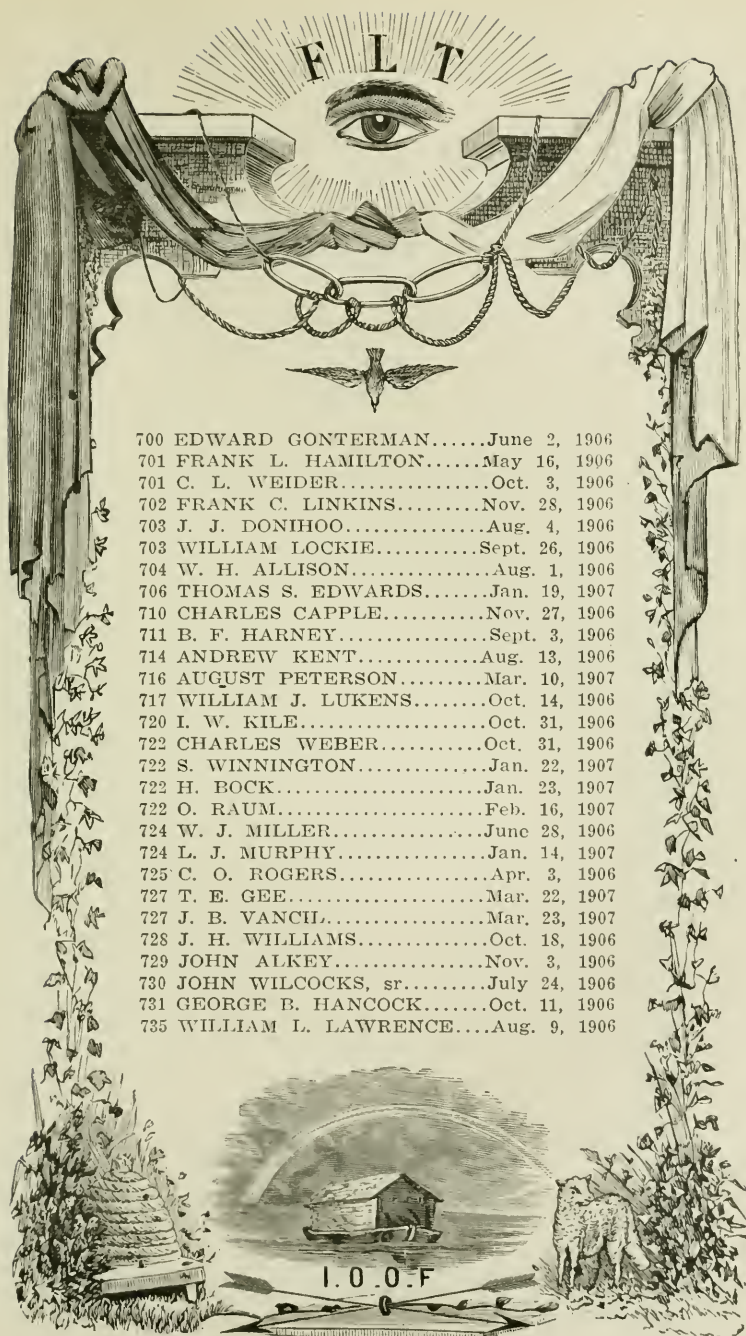 F L T
700 EDWARD GONTERMAN......June 2, 1906
701 FRANK L. HAMILTON......May 16, 1906
701 C. L. WEIDER..............Oct. 3, 1906
702 FRANK C. LINKINS.........Nov. 28, 1906
703 J. J. DONIHOO..............Aug. 4, 1906
703 WILLIAM LOCKIE...........Sept. 26, 1906
704 W. H. ALLISON..............Aug. 1, 1906
706 THOMAS S. EDWARDS.......Jan. 19, 1907
710 CHARLES CAPPLE...........Nov. 27, 1906
711 B. F. HARNEY................Sept. 3, 1906
714 ANDREW KENT.............Aug. 13, 1906
716 AUGUST PETERSON.........Mar. 10, 1907
717 WILLIAM J. LUKENS........Oct. 14, 1906
720 I. W. KILE....................Oct. 31, 1906
722 CHARLES WEBER...........Oct. 31, 1906
722 S. WINNINGTON..............Jan. 22, 1907
722 H. BOCK......................Jan. 23, 1907
722 O. RAUM......................Feb. 16, 1907
724 W. J. MILLER...............June 28, 1906
724 L. J. MURPHY................Jan. 14, 1907
725 C. O. ROGERS.................Apr. 3, 1906
727 T. E. GEE.....................Mar. 22, 1907
727 J. B. VANCIL.................Mar. 23, 1907
728 J. H. WILLIAMS..............Oct. 18, 1906
729 JOHN ALKEY.................Nov. 3, 1906
730 JOHN WILCOCKS, sr.........July 24, 1906
731 GEORGE B. HANCOCK.......Oct. 11, 1906
735 WILLIAM L. LAWRENCE....Aug. 9, 1906
I.O.O.F